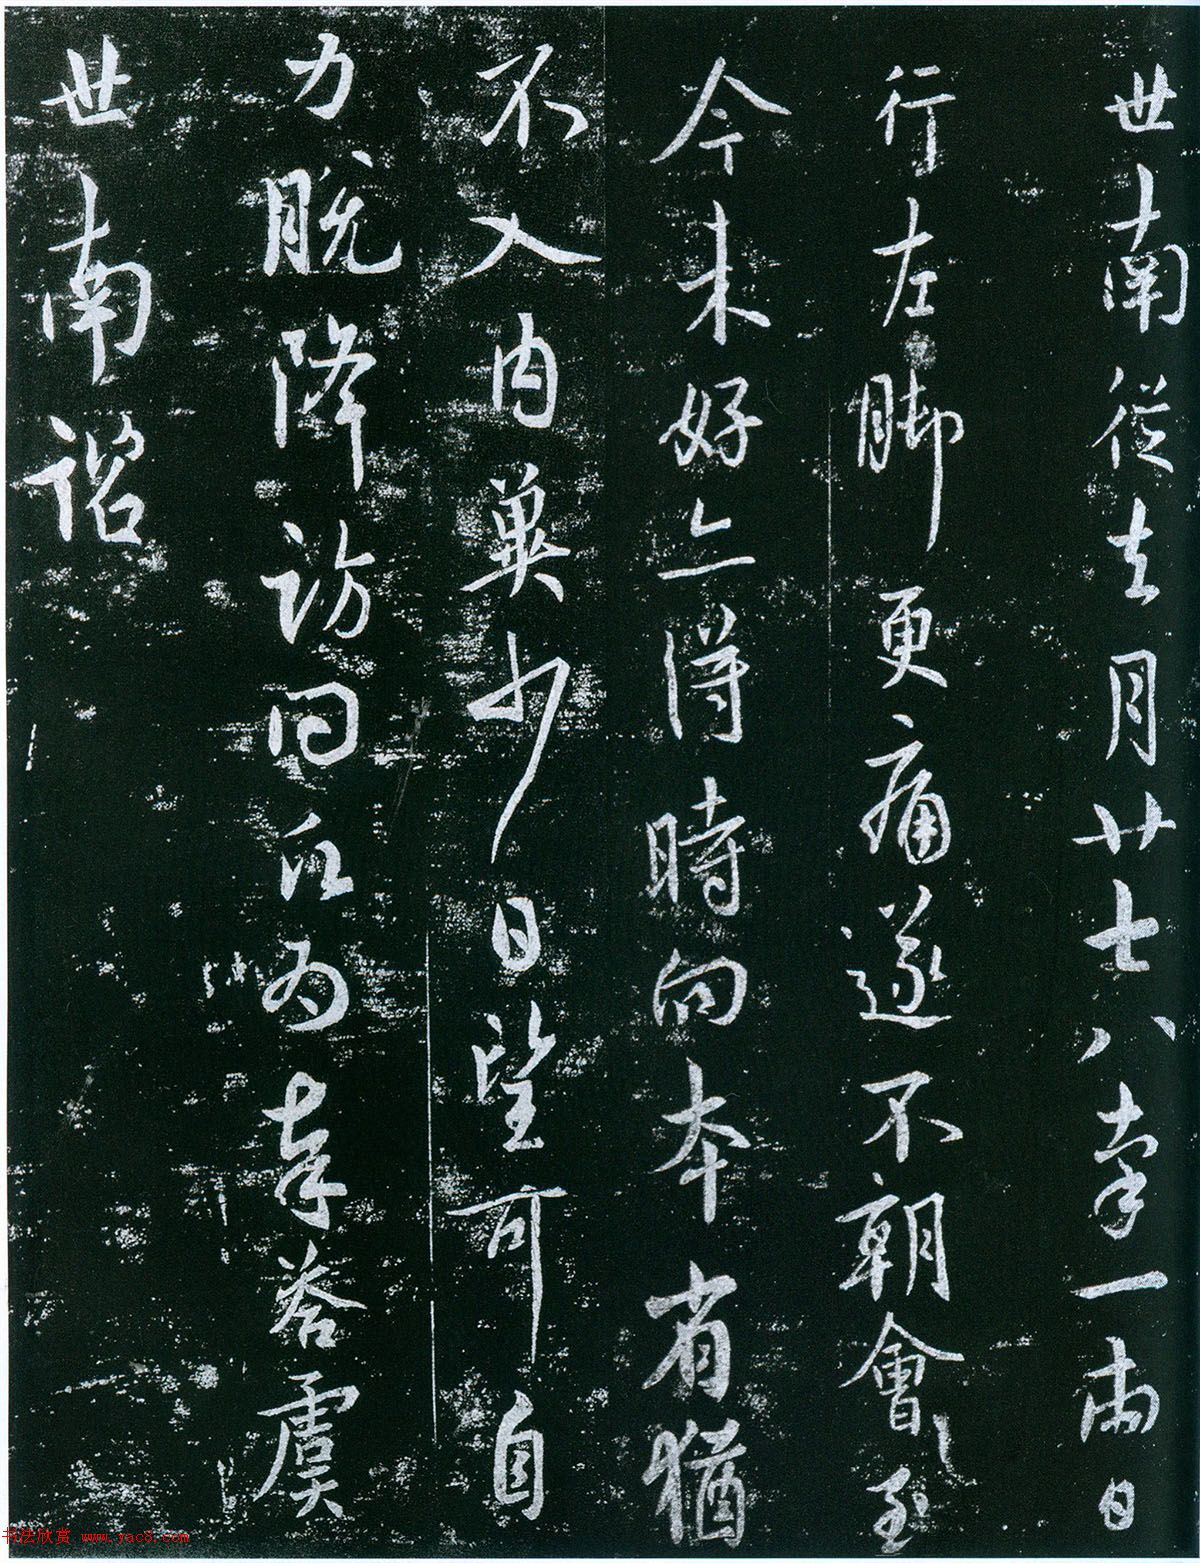 世南從去月廿七八牽一兩日
行左脚更痛遂不朝會至
今未好亦得時向本省猶
不入內冀少日望可自
力脫降訪問願為奉答虞
世南諮
书法欣赏 www.yac8.com